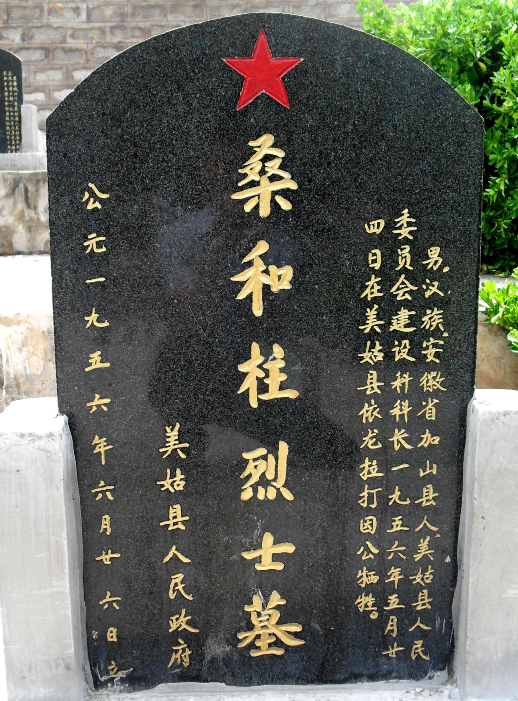 男,汉族,安徽省加山县人,美姑县人民
委员会建设科科长一九五六年五月廿
四日在美姑县依龙拉打因公牺牲。
桑和柱烈士墓
美姑县人民政府
公元一九五六年六月廿六日立